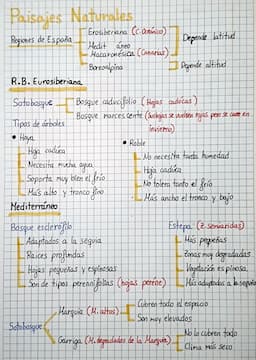 Paisajes Naturales
Regiones de España
Erosiberiana (C. Oceánico)
Medit áneo
Macaronésica (Canarias)
Depende latitud
Boreoalpina
Depende altitud
R.B. Eurosiberiana
Sotobosque
Bosque caducifolio (Hojas caducas)
Bosque marcescente (Sus hojas se vuelven rojas pero se caen en invierno)
Tipos de árboles
• Haya
Hoja caduca
Necesita mucha agua
Soporta muy bien el frío
Más alto y tronco fino
• Roble
No necesita tanta humedad
Hoja caduca
No tolera tanto el frío
Más ancho el tronco y bajo
Mediterráneo
Bosque esclerófilo
Adaptados a la sequía
Raíces profundas
Hojas pequeñas y espinosas
Son de tipo perennifolias (hojas perene)
Estepa (Z. semiáridas)
Más pequeñas
Zonas muy degradadas
Vegetación espinosa
Más adaptadas a la sequía
Sotobosque
Marquia (M. altos)
Cubren todo el espacio
Son muy elevados
Garriga (M. degradados de la Marquia)
No lo cubren todo
Clima más seco